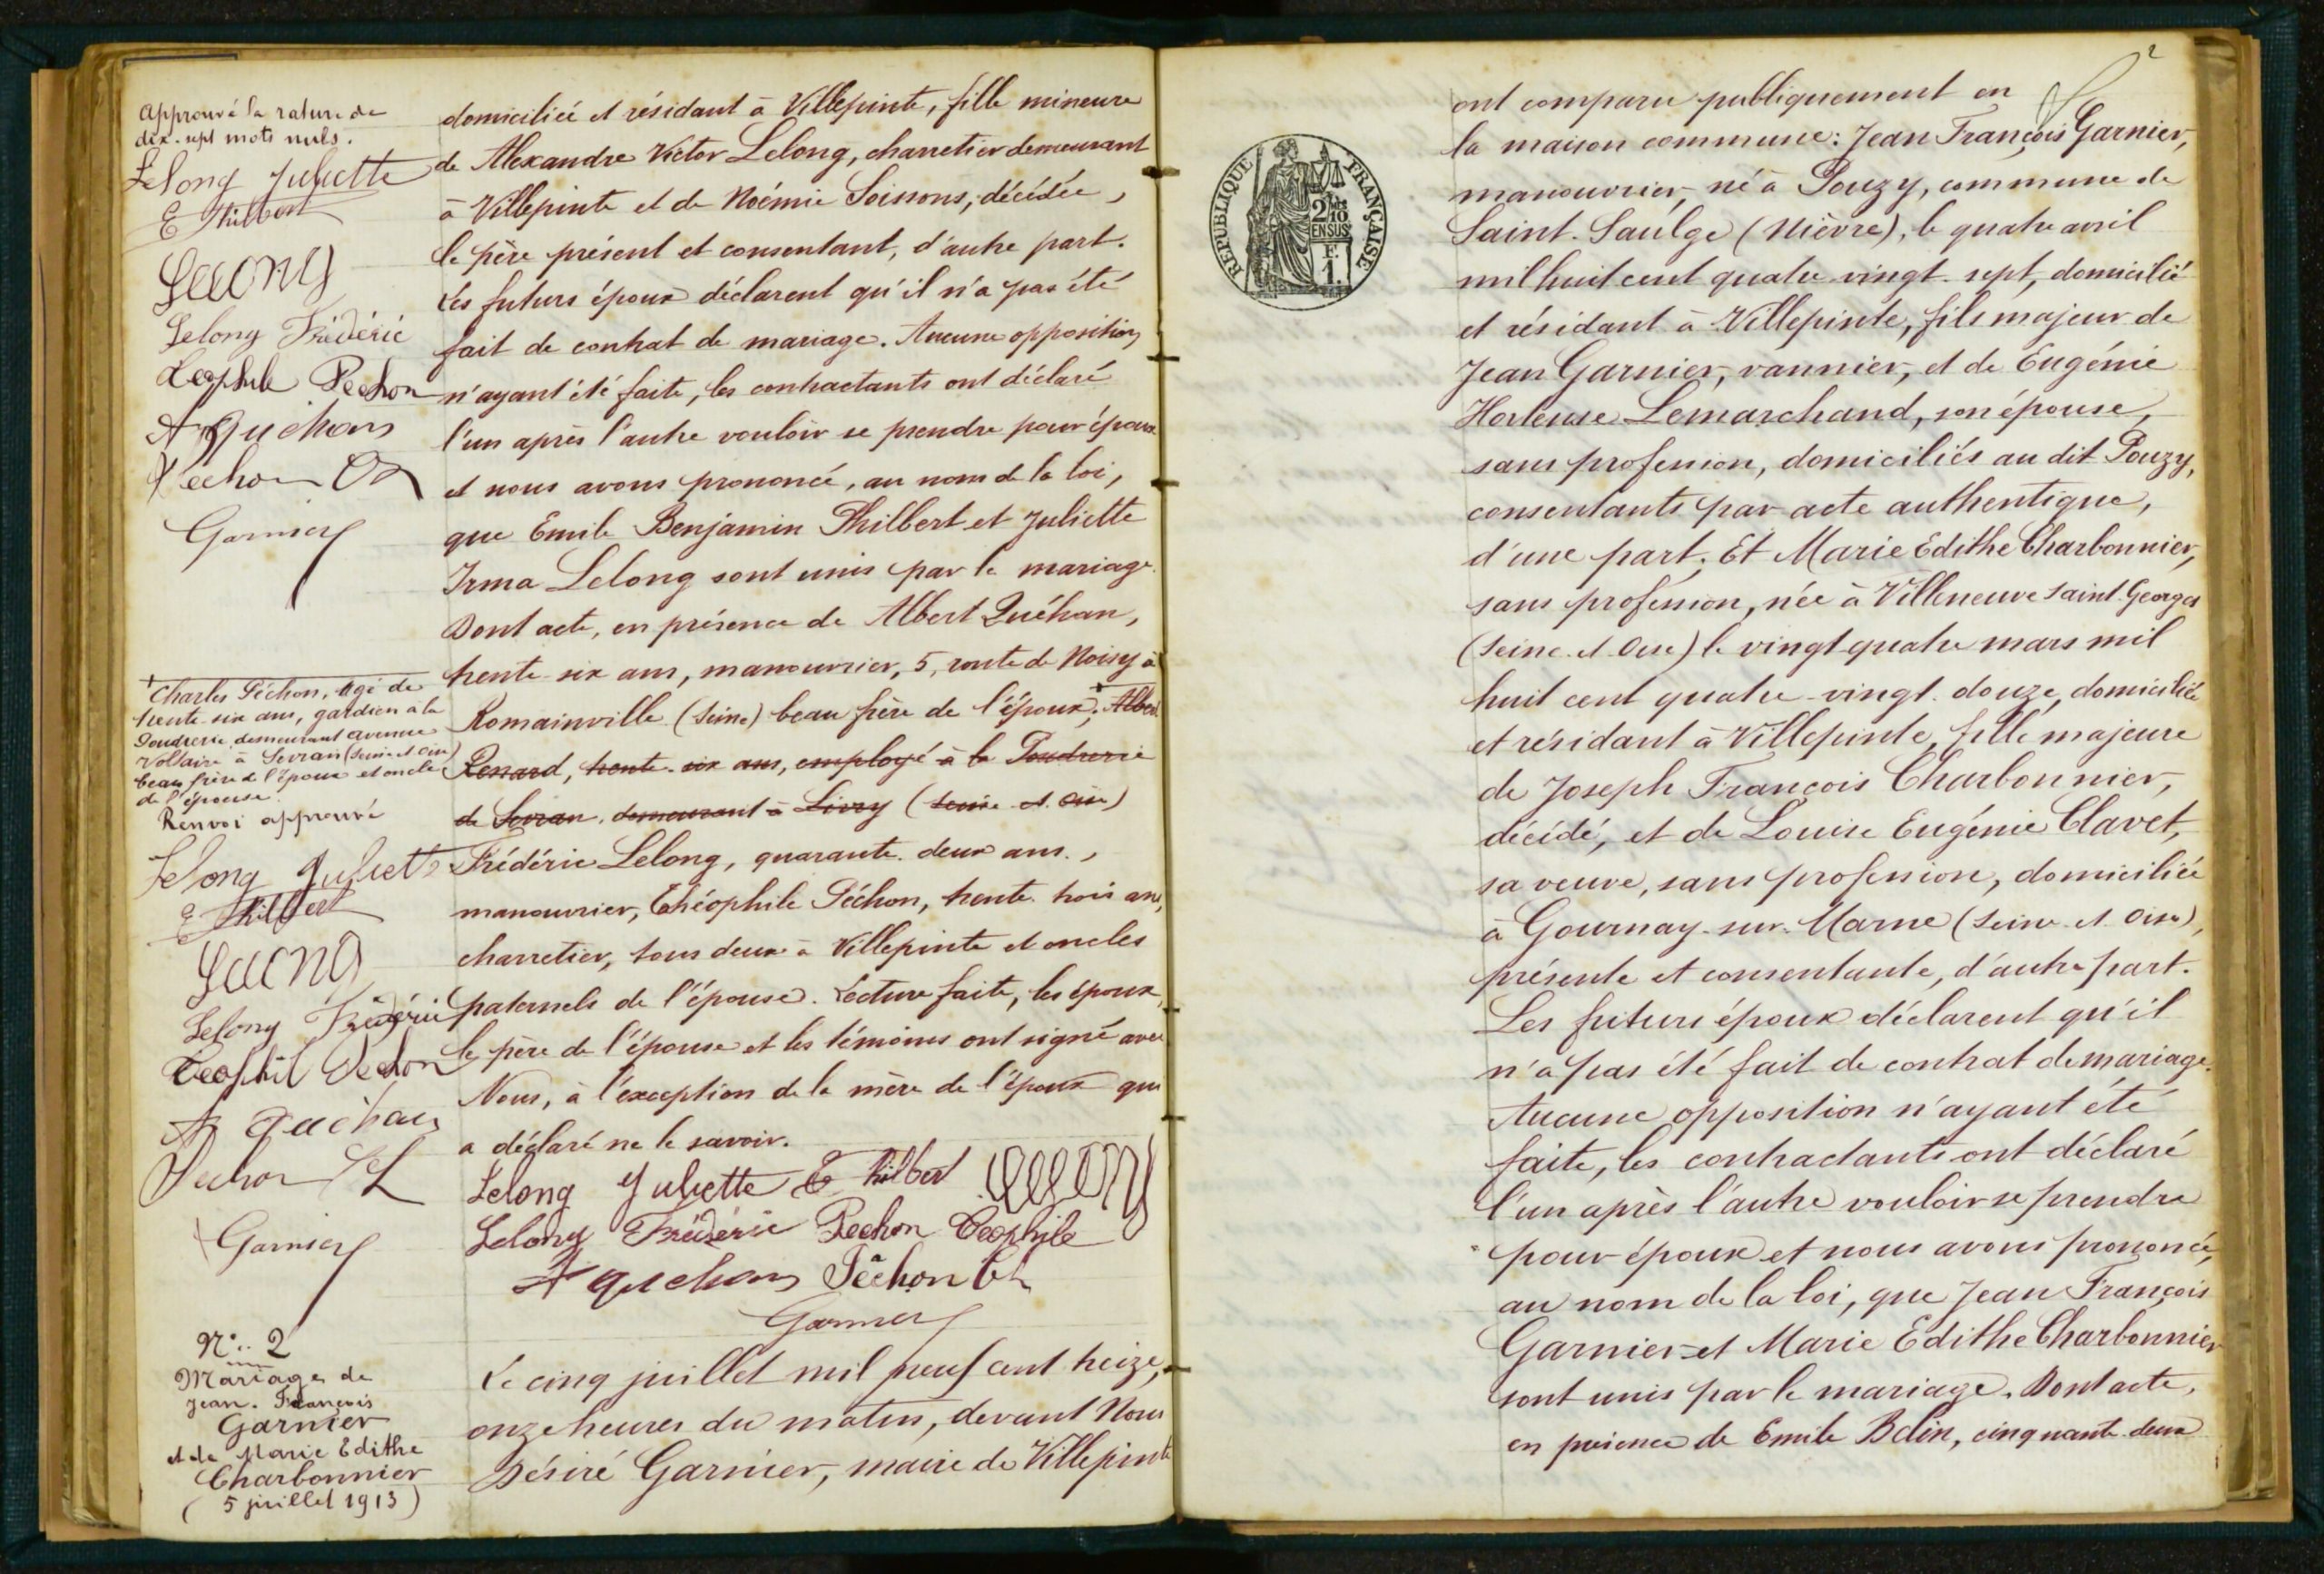 Approuvé la rature de
dix-sept mots nuls.
Lelong Juliette
E Philbert
Lelong
Lelong Frédéric
Péchon
A Quehan
Pechon Ch
Garnier
+ Charles Péchon, âgé de
trente-six ans, gardien à la
Poudrerie, demeurant avenue
Voltaire à Sevran (Seine et Oise)
beau frère de l'époux et oncle
de l'épouse.
Renvoi approuvé
Lelong Juliette
E Philbert
Lelong
Lelong Frédéric
Teophil Pechon
A Quehan
Pechon Ch
Garnier
N° 2
Mariage de
Jean-François
Garnier
et de Marie Edithe
Charbonnier
(5 juillet 1913)
domiciliée et résidant à Villepinte, fille mineure
de Alexandre Victor Lelong, charretier demeurant
à Villepinte et de Noémie Soissons, décédée,
le père présent et consentant, d'autre part.
Les futurs époux déclarent qu'il n'a pas été
fait de contrat de mariage. Aucune opposition
n'ayant été faite, les contractants ont déclaré
l'un après l'autre vouloir se prendre pour époux
et nous avons prononcé, au nom de la loi,
que Emile Benjamin Philbert et Juliette
Irma Lelong sont unis par le mariage.
Dont acte, en présence de Albert Quéhan,
trente-six ans, manouvrier, 5, route de Noisy à
Romainville (Seine) beau frère de l'époux; + Albert
Renard, trente-six ans, employé à la Poudrerie
de Sevran, demeurant à Livry (Seine et Oise)
Frédéric Lelong, quarante-deux ans,
manouvrier, Théophile Péchon, trente-trois ans,
charretier, tous deux à Villepinte et oncles
paternels de l'épouse. Lecture faite, les époux,
le père de l'épouse et les témoins ont signé avec
Nous, à l'exception de la mère de l'époux qui
a déclaré ne le savoir.
Lelong Juliette E Philbert Lelong
Lelong Frédéric Pechon Teophile
A Quehan Péchon Ch
Garnier
Le cinq juillet mil neuf cent treize,
onze heures du matin, devant Nous
Désiré Garnier, maire de Villepinte
2
RÉPUBLIQUE FRANÇAISE
2/10
EN SUS
F.
1.
ont comparu publiquement en
la maison commune: Jean François Garnier,
manouvrier, né à Pouzy, commune de
Saint-Saulge (Nièvre), le quatre avril
mil huit cent quatre-vingt-sept, domicilié
et résidant à Villepinte, fils majeur de
Jean Garnier, vannier, et de Eugénie
Hortense Lemarchand, son épouse,
sans profession, domiciliés au dit Pouzy,
consentants par acte authentique,
d'une part. Et Marie Edithe Charbonnier,
sans profession, née à Villeneuve Saint-Georges
(Seine et Oise) le vingt-quatre mars mil
huit cent quatre-vingt-douze, domiciliée
et résidant à Villepinte, fille majeure
de Joseph François Charbonnier,
décédé, et de Louise Eugénie Clavet,
sa veuve, sans profession, domiciliée
à Gournay-sur-Marne (Seine et Oise),
présente et consentante, d'autre part.
Les futurs époux déclarent qu'il
n'a pas été fait de contrat de mariage.
Aucune opposition n'ayant été
faite, les contractants ont déclaré
l'un après l'autre vouloir se prendre
pour époux et nous avons prononcé,
au nom de la loi, que Jean François
Garnier et Marie Edithe Charbonnier
sont unis par le mariage. Dont acte,
en présence de Emile Belin, cinquante-deux